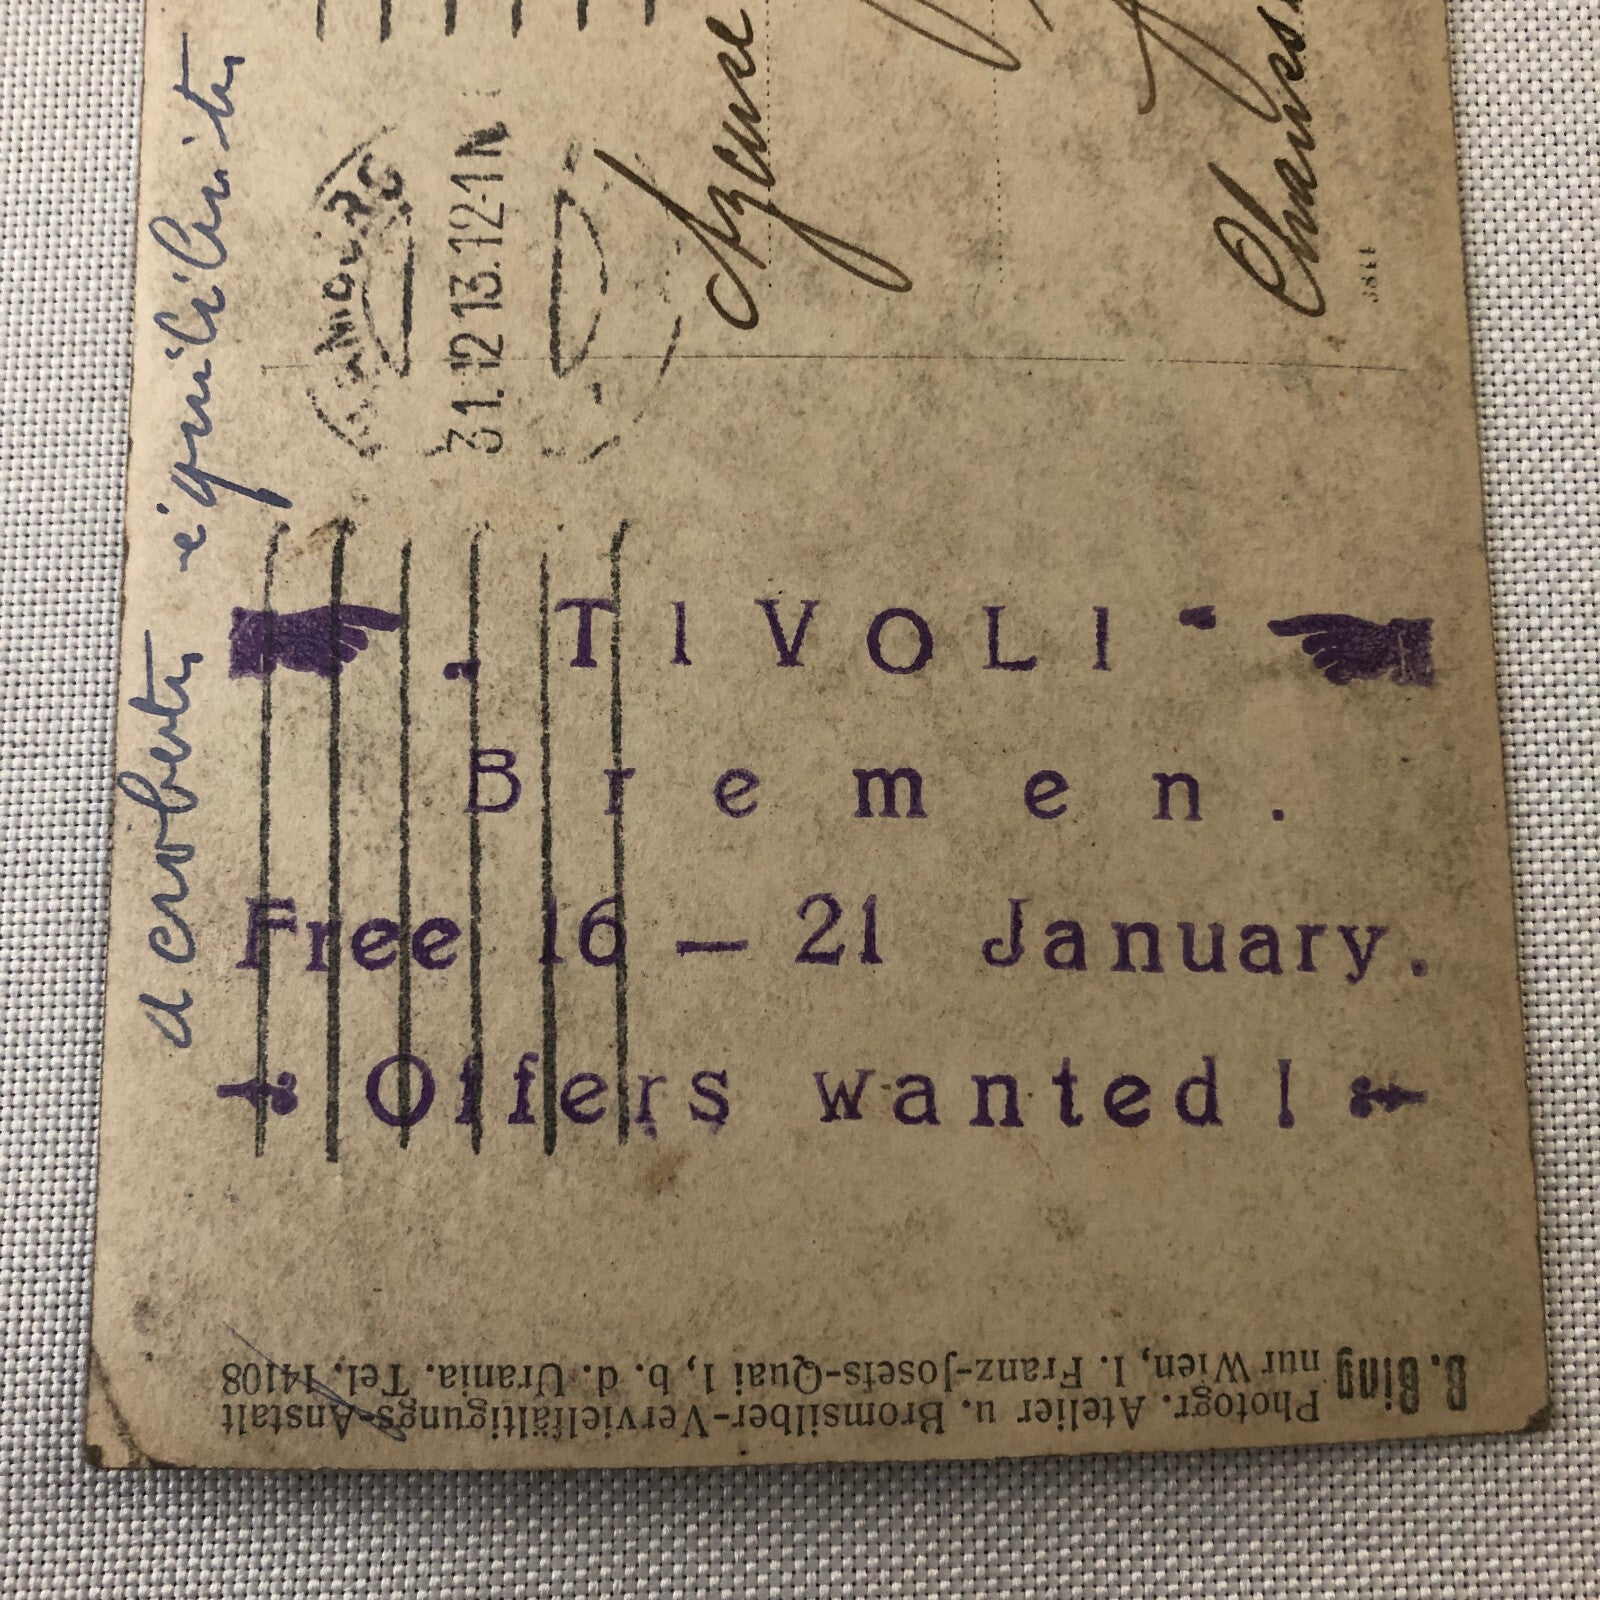 acrobate équilibriste
31.12 13.12-1 N
. TIVOLI .
Bremen.
Free 16 — 21 January.
Offers wanted!
B. Bing
Photogr. Atelier u. Bromsilber-Vervielfältigungs-Anstalt
nur Wien, I. Franz-Josefs-Quai 1, b. d. Urania. Tel. 14108